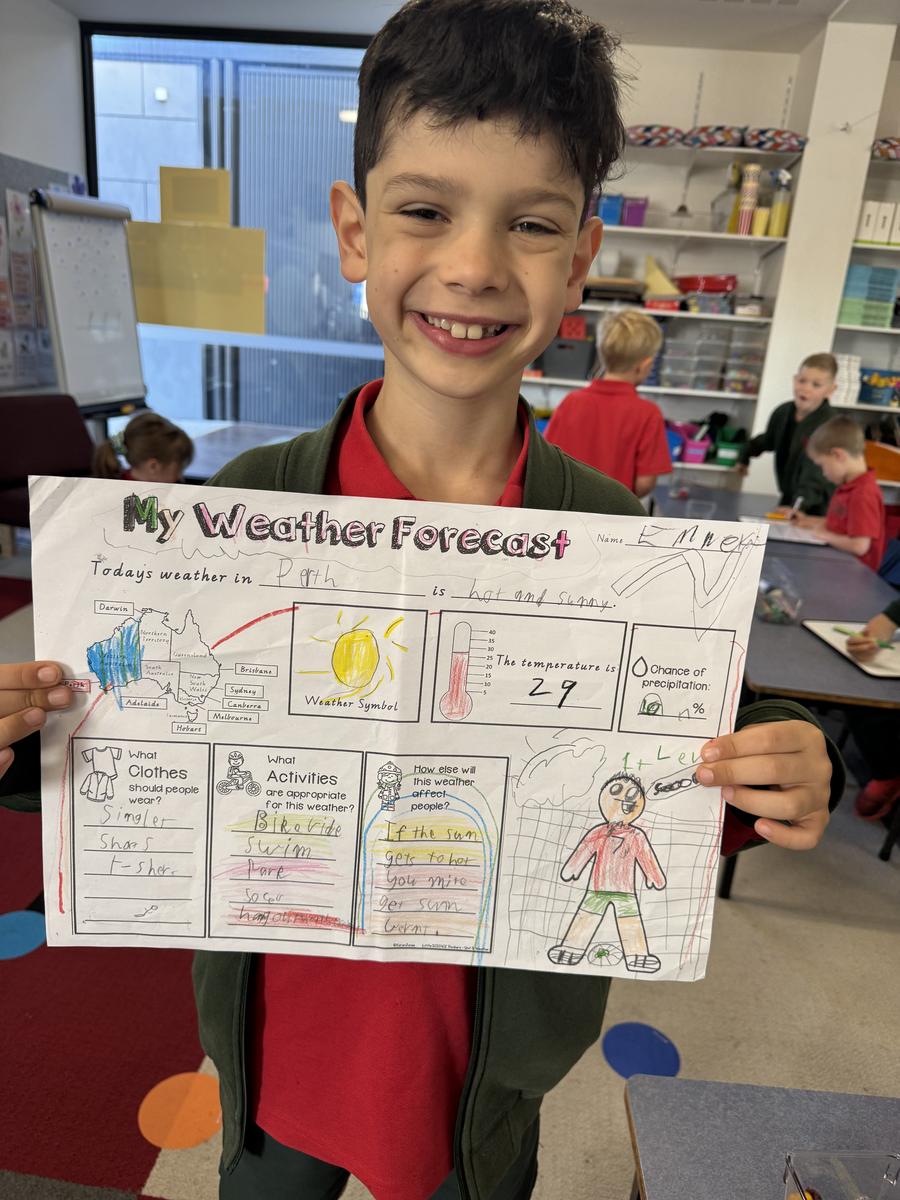 My Weather Forecast
Name
Today's weather in Perth is hot and sunny.
Darwin
Northern Territory
Queensland
Western Australia
South Australia
New South Wales
Brisbane
Sydney
Canberra
Melbourne
Adelaide
Hobart
Perth
Weather Symbol
40
35
30
25
20
15
10
5
The temperature is
29
Chance of
precipitation:
10 %
What
Clothes
should people
wear?
Singlet
Shors
t-sher
What
Activities
are appropriate
for this weather?
Bike ride
swim
Park
socer
How else will
this weather
affect
people?
If the sun
gets to hot
you mite
get sun
bernt.